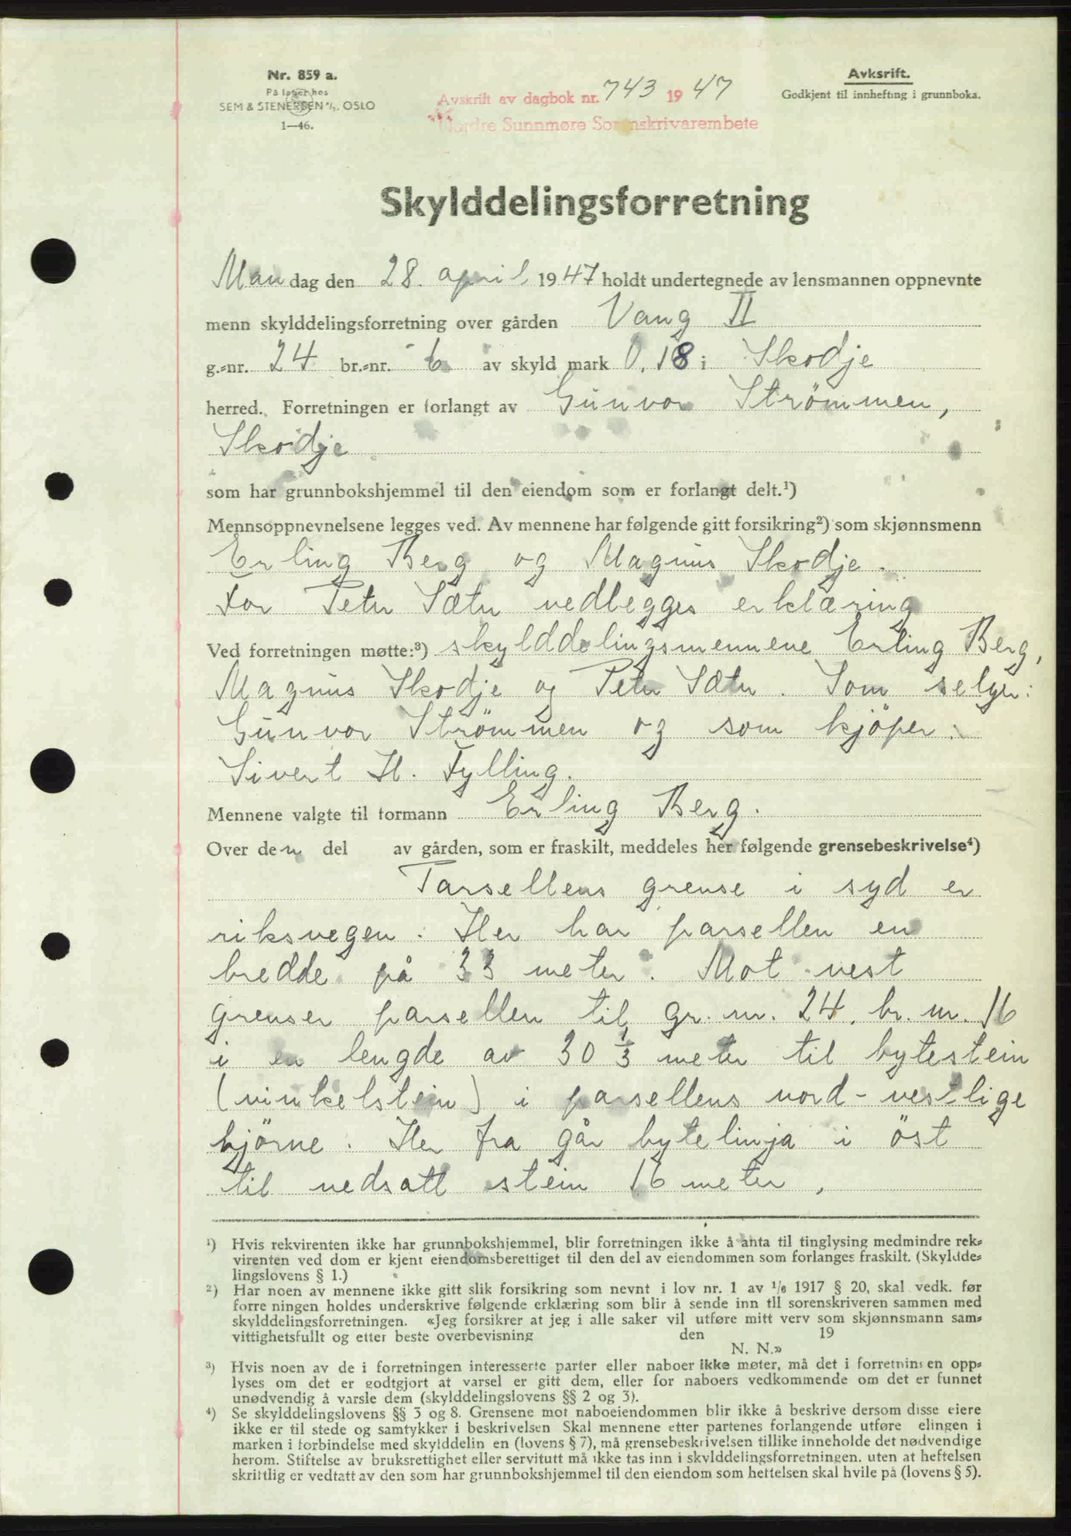 Nr. 859 a.
På lager hos
SEM & STENERSEN A/S. OSLO
1—46.
Avskrift av dagbok nr. 743 1947
Nordre Sunnmøre Sorenskrivarembete
Avksrift.
Godkjent til innhefting i grunnboka.
Skylddelingsforretning
Mandag den 28. april 1947 holdt undertegnede av lensmannen oppnevnte
menn skylddelingsforretning over gården Vang II
g.=nr. 24 br.=nr. 6 av skyld mark 0,18 i Skodje
herred. Forretningen er forlangt av Gunvor Strömmen,
Skodje
som har grunnbokshjemmel til den eiendom som er forlangt delt.¹)
Mennsoppnevnelsene legges ved. Av mennene har følgende gitt forsikring²) som skjønnsmenn
Erling Berg og Magnus Skodje.
For Peter Sæter vedlegges erklæring
Ved forretningen møtte:³) skylddelingsmennene Erling Berg,
Magnus Skodje og Peter Sæter. Som selger:
Gunvor Strömmen og som kjöper:
Sivert H. Fylling.
Mennene valgte til formann Erling Berg.
Over den del av gården, som er fraskilt, meddeles her følgende grensebeskrivelse⁴)
Parsellens grense i syd er
riksvegen. Her har parsellen en
bredde på 33 meter. Mot vest
grenser parsellen til gr. nr. 24, br. nr. 16
i en lengde av 30 1/3 meter til bytestein
(vinkelstein) i parsellens nord-vestlige
hjörne. Her fra går bytelinja i öst
til nedsatt stein 16 meter,
¹) Hvis rekvirenten ikke har grunnbokshjemmel, blir forretningen ikke å anta til tinglysing medmindre rek=
virenten ved dom er kjent eiendomsberettiget til den del av eiendommen som forlanges fraskilt. (Skyldde=
lingslovens § 1.)
²) Har noen av mennene ikke gitt slik forsikring som nevnt i lov nr. 1 av 1/6 1917 § 20, skal vedk. før
forre ningen holdes underskrive følgende erklæring som blir å sende inn til sorenskriveren sammen med
skylddelingsforretningen. «Jeg forsikrer at jeg i alle saker vil utføre mitt verv som skjønnsmann sam=
vittighetsfullt og etter beste overbevisning den 19
N. N.»
³) Hvis noen av de i forretningen interesserte parter eller naboer ikke møter, må det i forretnin en opp=
lyses om det er godtgjort at varsel er gitt dem, eller for naboers vedkommende om det er funnet
unødvendig å varsle dem (skylddelingslovens §§ 2 og 3).
⁴) Se skylddelingslovens §§ 3 og 8. Grensene mot naboeiendommen blir ikke å beskrive dersom disse eiere
ikke er til stede og samtykker i beskrivelsen Skal mennene etter partenes forlangende utføre elingen i
marken i forbindelse med skylddelin en (lovens § 7), må grensebeskrivelsen tillike inneholde det nødvendige
herom. Stiftelse av bruksrettighet eller servitutt må ikke tas inn i skylddelingsforretningen, uten at heftelsen
skriftlig er vedtatt av den som har grunnbokshjemmel til den eiendom som heftelsen skal hvile på (lovens § 5).